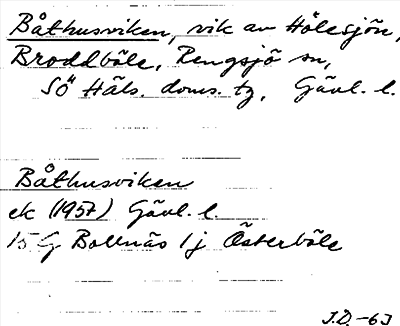 Båthusviken, vik av Hölesjön,
Broddböle, Rengsjö sn,
Sö Häls. doms. tg, Gävl. l.
Båthusviken
ek (1957) Gävl. l.
15 G Bollnäs 1 j Österböle
J.D. -63